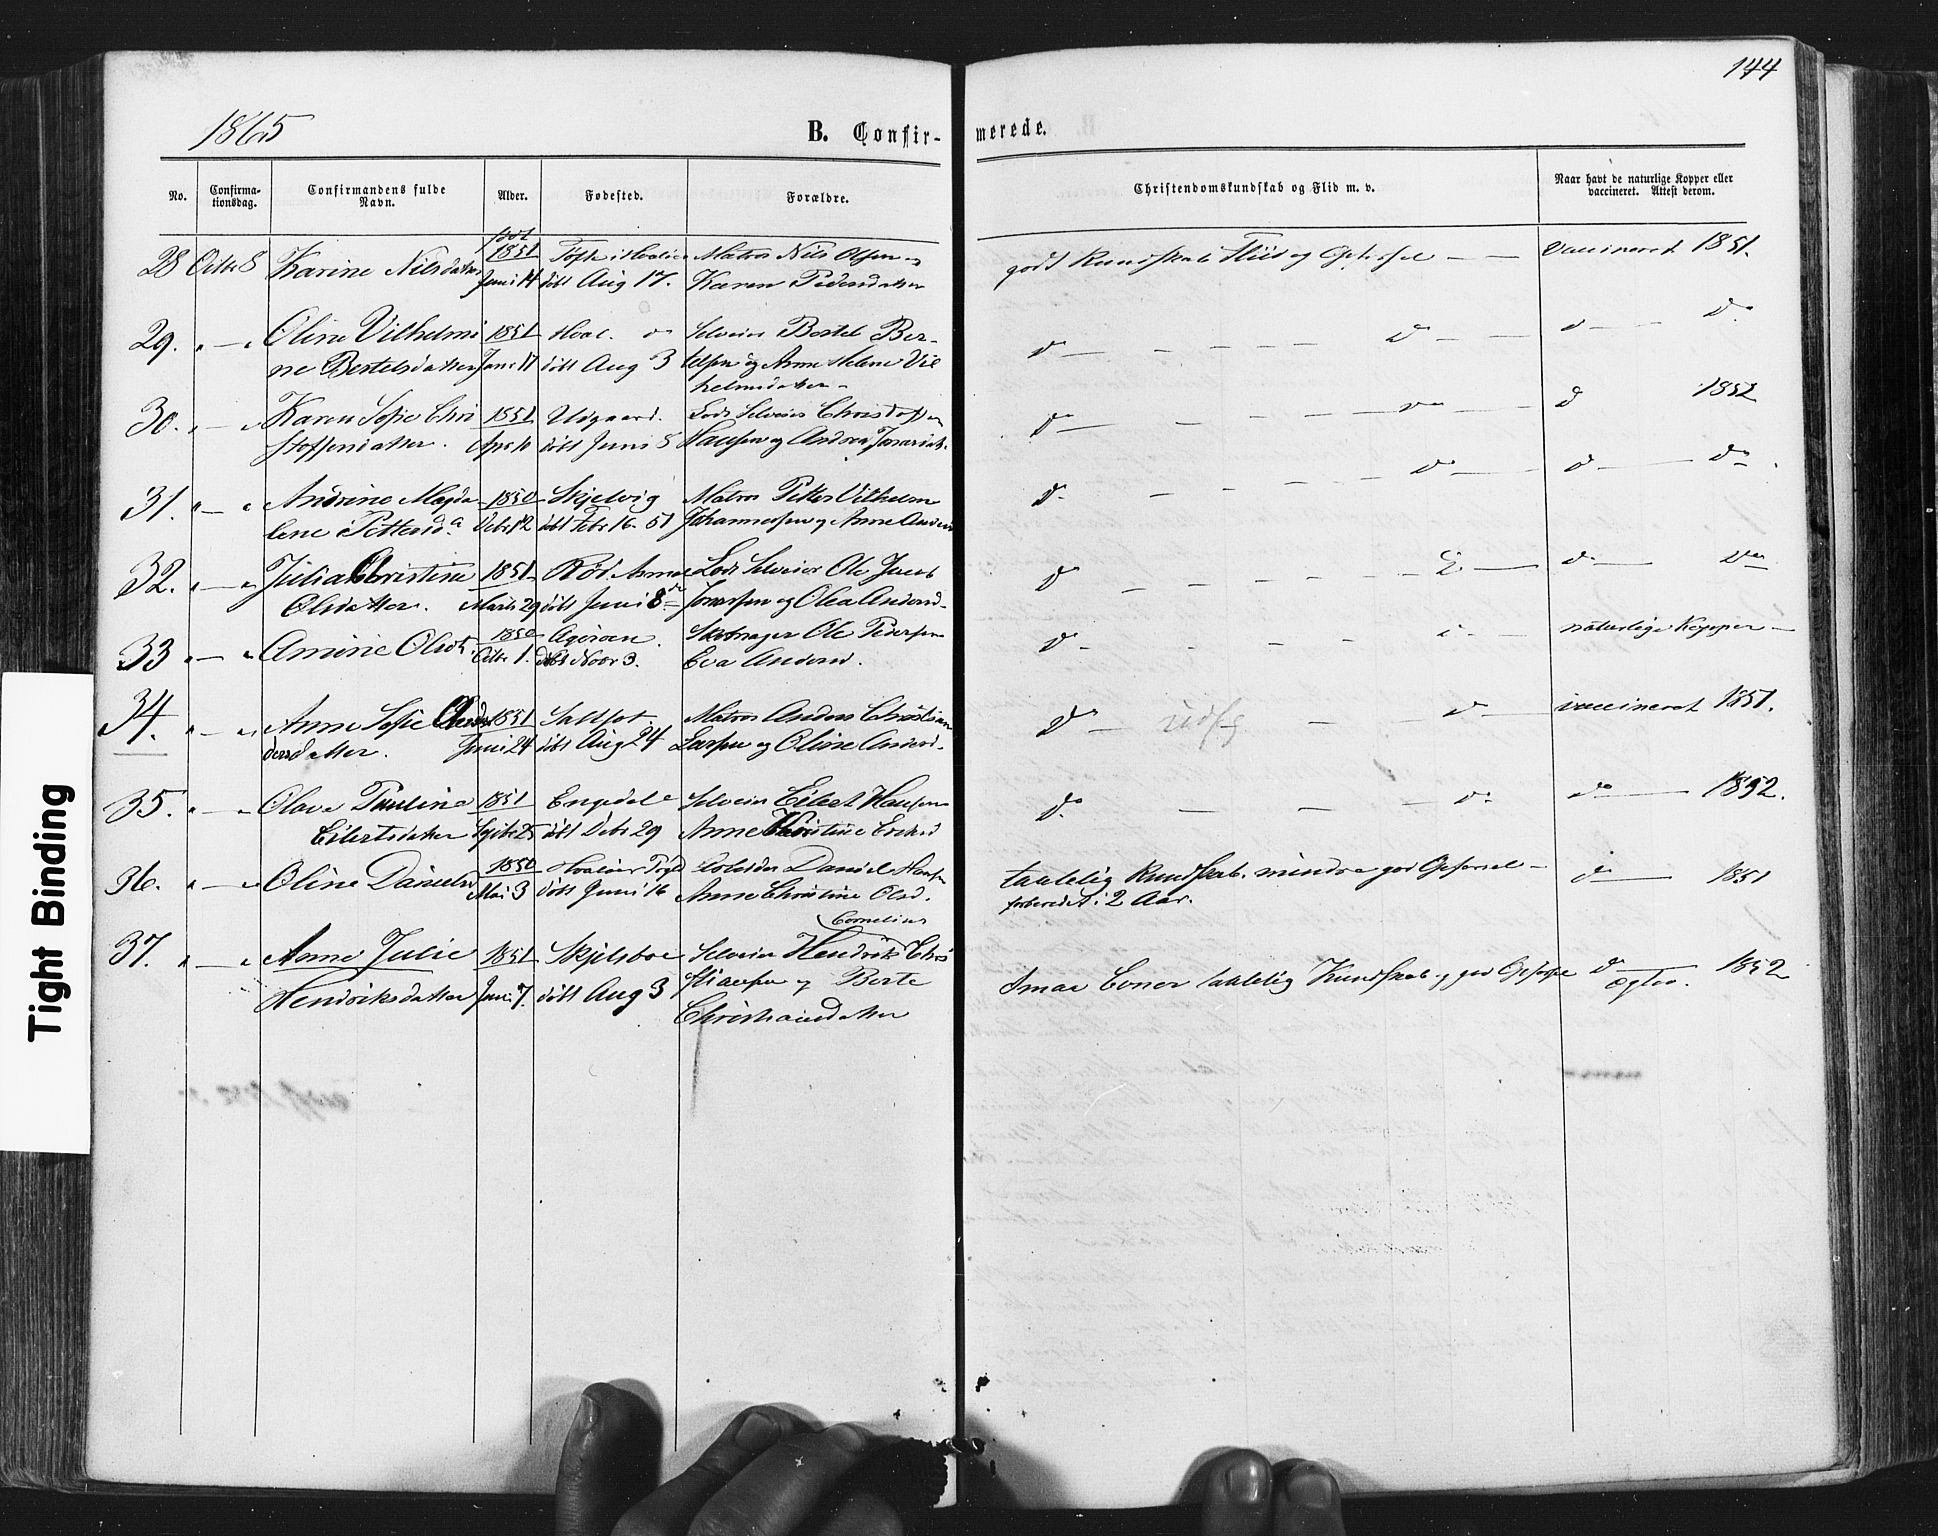 144
1865
B. Confir-
merede.
No.
Confirma-
tionsdag.
Confirmandens fulde
Navn.
Alder.
Fødested.
Forældre.
Christendomskundskab og Flid m. v.
Naar havt de naturlige Kopper eller
vaccineret. Attest derom.
født
28 Octbr 8 Karine Nilsdatter 1851 Matros Nils Olsen og
Juni 14 døbt Aug 17. Karen Pedersdatter
godt Kundskab Fliid og Opførsel — — Vaccineret 1851.
29. " — " Oline Vilhelmi 1851 Hval. Selveier Bertel Ber-
ne Bertelsdatter Juni 17 døbt Aug 3 telsen og Anne Helene Vil
helmsdatter
do — — — — — do — do — do
30. " — " Karen Sofie Chri 1851 Udgaard. Lods Selveier Christoffer
stoffersdatter. Apr 10 døbt Juni 8 Hansen og Andrea
do — — — — do — do 1852
31. " — " Andrine Magda 1850 Skjelvig Matros Petter Vilhelm
lene Petterd. Debr 12 døbt Febr 16. 51 Johannessen og Anne
do — — — — do — do — do
32. " — " Julia Christine 1851 Rød Lods Selveier Ole Jacob
Olsdatter. Marts 29 døbt Juni 8 og Olea Andersd.
do — — — — — do — do — do
33 " — " Amine Olsd. 1850 Ole Pedersen
Octbr 1. døbt Novr 3. Eva Andersd.
do — — — naturlige Kopper —
34. " — " Anne Sofie 1851 Matros Anders Christian
dersdatter. Juni 24 døbt Aug 24 Larsen og Oline Andersd.
do — udfg — do — vaccineret 1851.
35. " — " Olava Pauline 1851 Engedale Selveier Eilert Hansen
Eilertsdatter døbt Debr 29 Anne Christine
do — — — do — do — 1852.
36. " — " Oline Danielsd 1850 Daniel Hansen
Mai 3 døbt Juni 16 Anne Christine Olsd.
taalelig Kundskab. mindre god Opførsel — do — 1851
forberedet i 2 Aar.
Cornelius
37. " — " Anne Julie 1851 Skjelsboe Selveier Hendrik Chri
Hendriksdatter Juni 7. døbt Aug 3 stiansen og Berte
Christiansdatter
smaa Evner taalelig Kundskab og god Opførsel do — 1852
Tight Binding